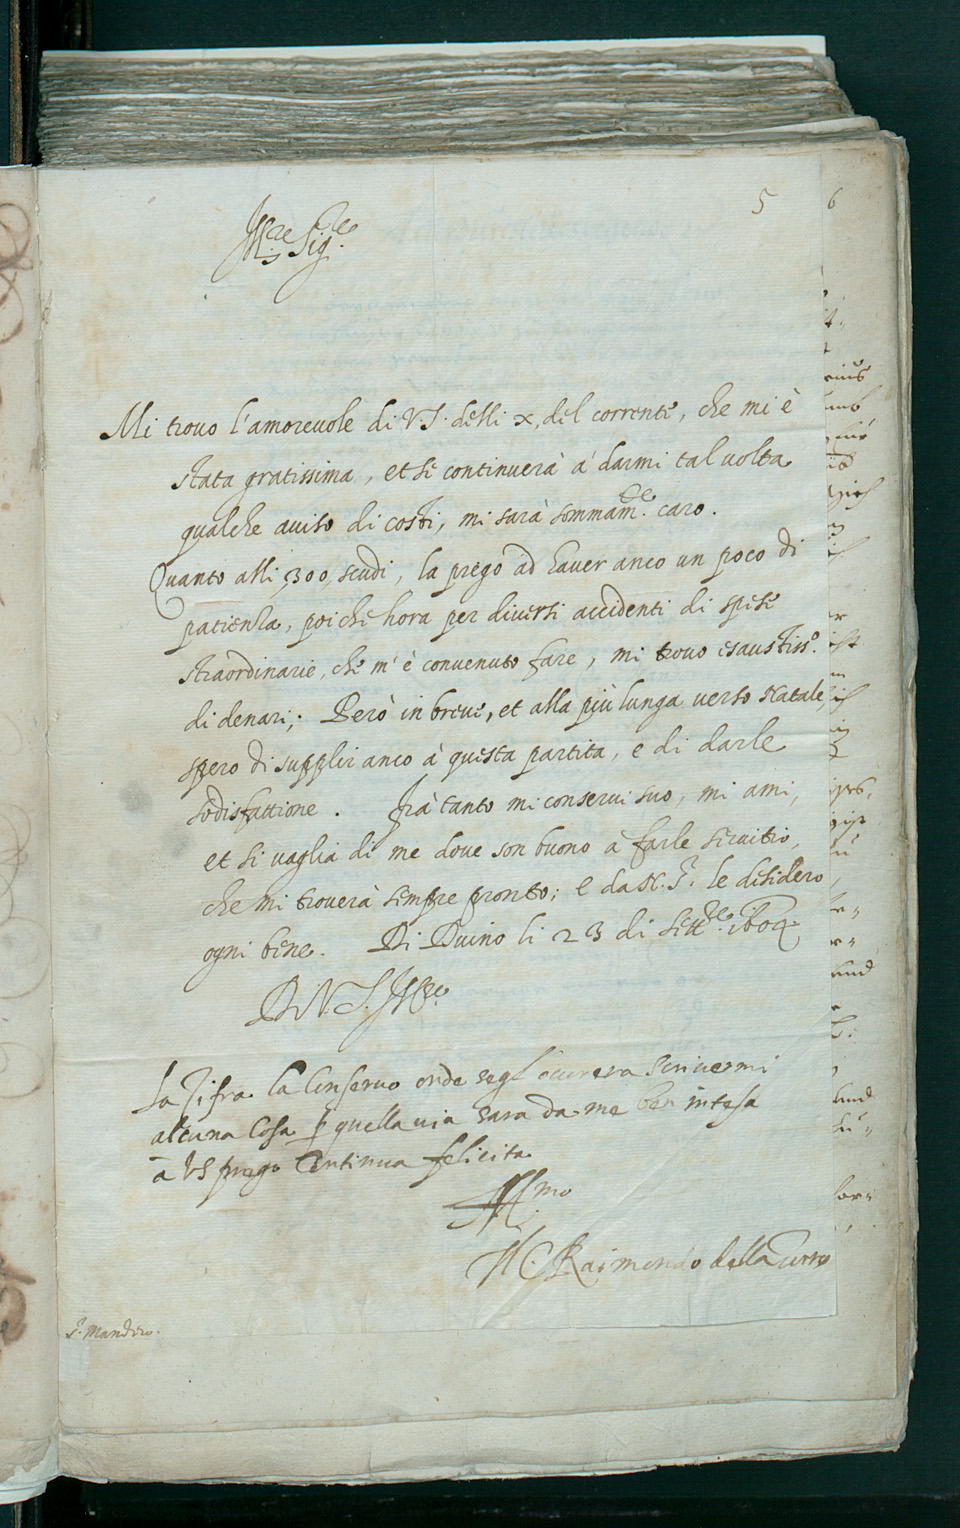 5
6
Ill.re Sig.re
Mi trovo l'amorevole di V.S. delli x, del corrente, che mi è
stata gratissima, et se continuerà à darmi tal volta
qualche aviso di costì, mi sarà sommam.te caro.
Quanto alli 300, scudi, la prego ad haver anco un poco di
patienza, poiche hora per diversi accidenti di spese
straordinarie, che m'è convenuto fare, mi trovo esaustiss.o
di denari; Però in breve, et alla più lunga verso Natale,
spero di supplir anco à questa partita, e di darle
sodisfattione. Frà tanto mi conservi suo, mi ami,
et si vaglia di me dove son buono à farle servitio,
che mi troverà sempre pronto; e da N. S. le desidero
ogni bene. Di Duino li 23 di Sett.re
Di V. S. Ill.re
La Zifra la Conservo onde segl'ocurera scrivermi
alcuna Cosa p quella via sara da me ben intesa
à VS prego Continua felicita
Il C. Raimondo della Torre
S. Mandero.